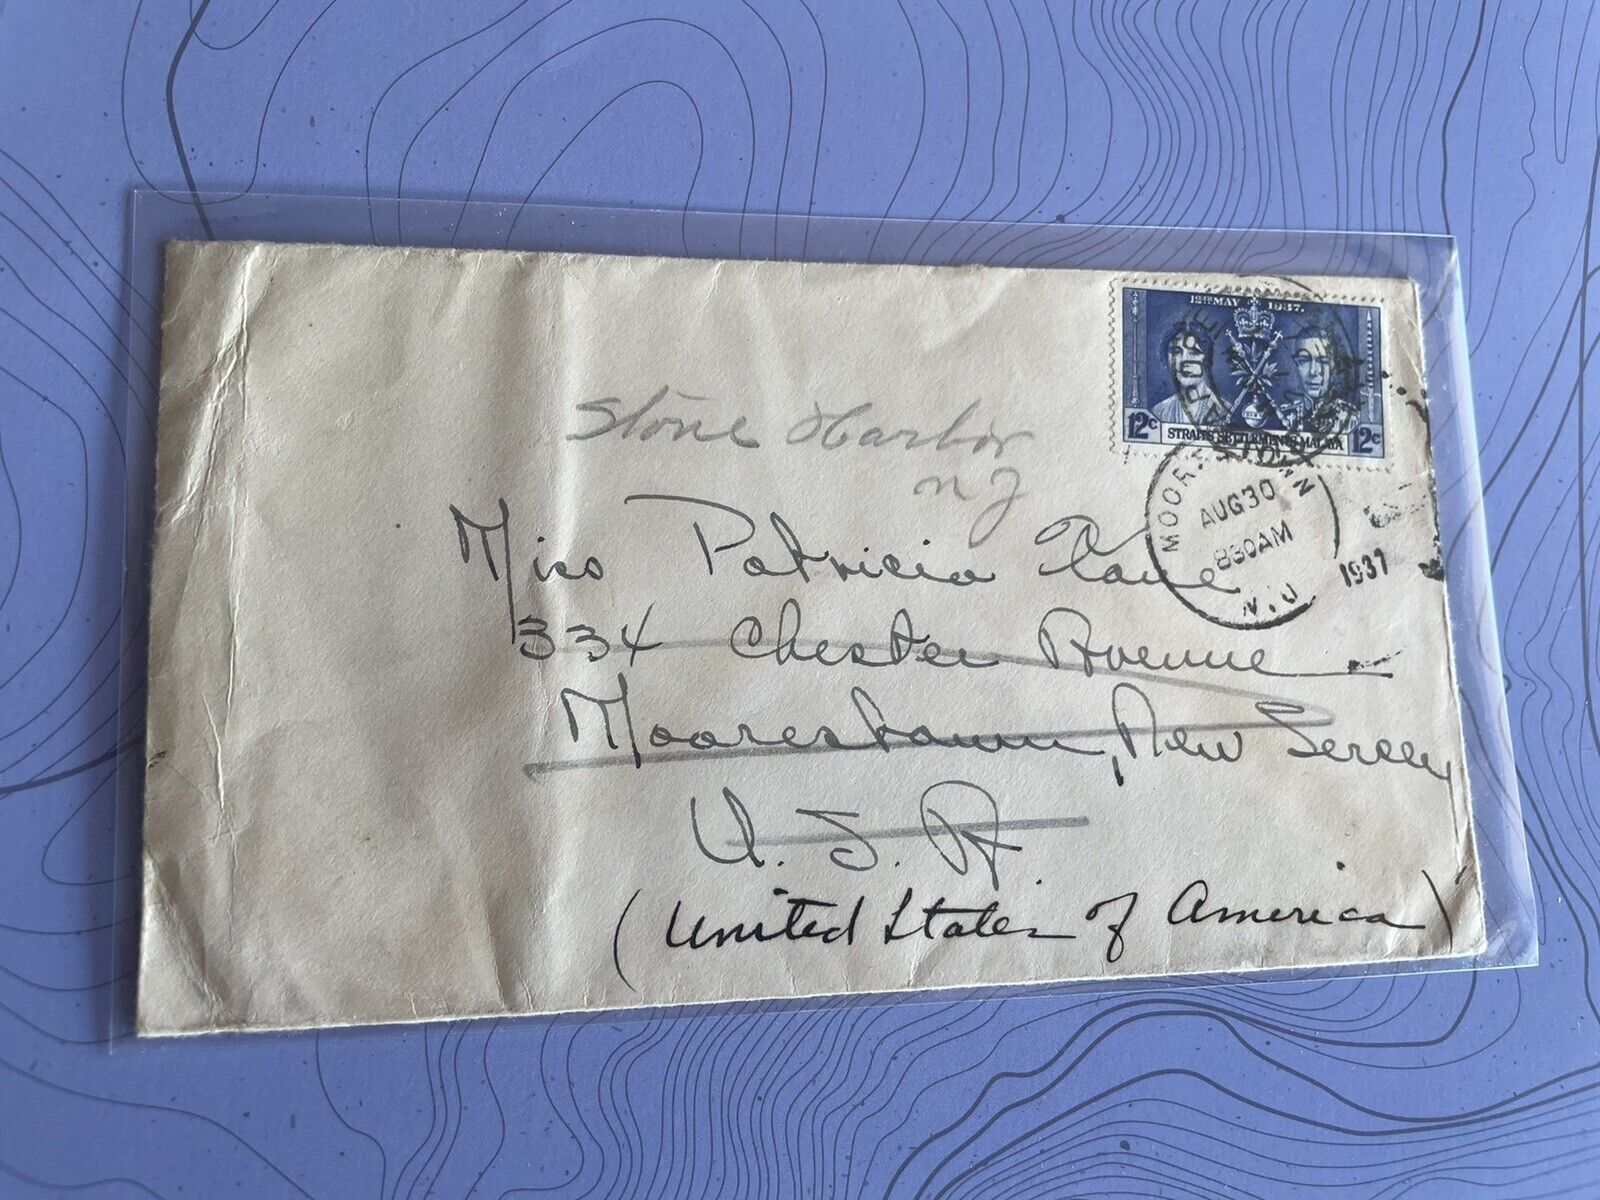 12TH MAY 1937.
12c STRAITS SETTLEMENTS MALAYA 12c
MOORESTOWN
AUG 30
830AM
N.J.
1937
Stone Harbor
NJ
Miss Patricia
334 Chester Avenue
Moorestown, New Jersey
U.S.A
(United States of America)